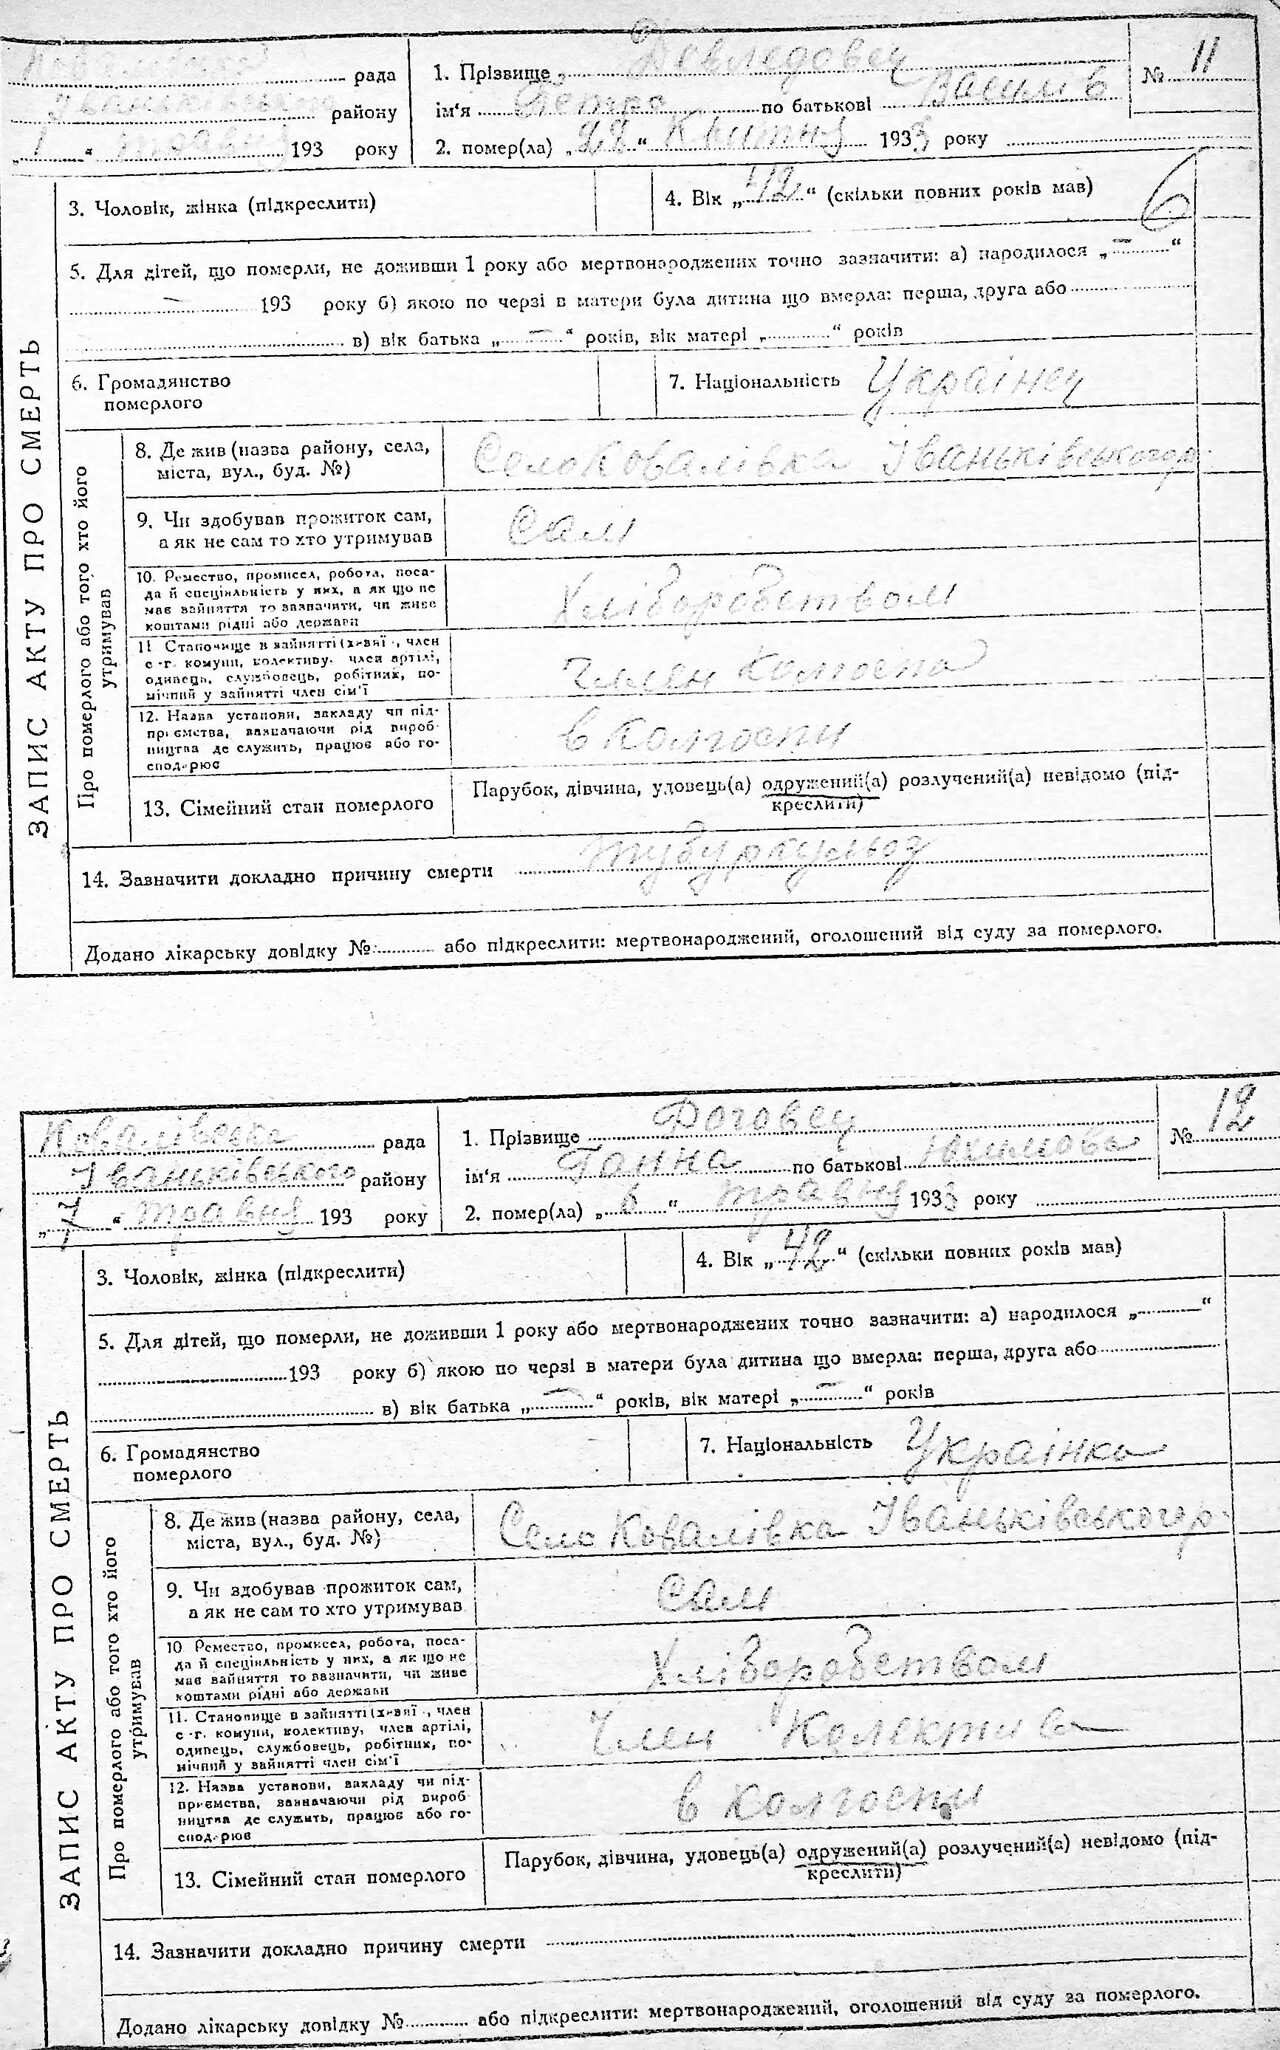 Ковалівська рада
Іваньківського району
„ 1 “ травня 193 року
1. Прізвище
ім‘я Петро по батькові Васил. б
2. помер(ла) „ 28 “ Квитня 1933 року
№ 11
ЗАПИС АКТУ ПРО СМЕРТЬ
3. Чоловік, жінка (підкреслити)
4. Вік „ 42 “ (скільки повних років мав)
6
5. Для дітей, що померли, не доживши 1 року або мертвонароджених точно зазначити: а) народилося „ — “
— 193 року б) якою по черзі в матери була дитина що вмерла: перша, друга або
в) вік батька „ — “ років, вік матері „ “ років
6. Громадянство
померлого
7. Національність Українец
Про померлого або того хто його
утримував
8. Де жив (назва району, села,
міста, вул., буд. №)
Село Ковалівка Іваньківського р.
9. Чи здобував прожиток сам,
а як не сам то хто утримував
Сам
10. Ремество, промисел, робота, поса-
да й спеціяльність у них, а як що не
має зайняття то зазначити, чи живе
коштами рідні або держави
Хліборобством
11 Становище в зайнятті (х-вні ., член
с -г. комуни, колективу, член артілі,
одинець, службовець, робітник, по-
мічний у зайнятті член сім‘ї
Член Колгоспа
12. Назва установи, закладу чи під-
приємства, зазначаючи рід вироб-
ництва де служить, працює або го-
сподарює
в колгоспи
13. Сімейний стан померлого
Парубок, дівчина, удовець(а) одружений(а) розлучений(а) невідомо (під-
креслити)
14. Зазначити докладно причину смерти тубуркульоз
Додано лікарську довідку № або підкреслити: мертвонароджений, оголошений від суду за померлого.
Ковалівська рада
Іваньківського району
„ 7 “ травня 193 року
1. Прізвище Роговец
ім‘я Ганна по батькові Юхимовa
2. помер(ла) „ 6 “ травня 1933 року
№ 12
ЗАПИС АКТУ ПРО СМЕРТЬ
3. Чоловік, жінка (підкреслити)
4. Вік „ 42 “ (скільки повних років мав)
5. Для дітей, що померли, не доживши 1 року або мертвонароджених точно зазначити: а) народилося „ “
193 року б) якою по черзі в матери була дитина що вмерла: перша, друга або
в) вік батька „ — “ років, вік матері „ — “ років
6. Громадянство
померлого
7. Національність Українка
Про померлого або того хто його
утримував
8. Де жив (назва району, села,
міста, вул., буд. №)
Село Ковалівка Іваньківського р.
9. Чи здобував прожиток сам,
а як не сам то хто утримував
Сам
10 Ремество, промисел, робота, поса-
да й спеціяльність у них, а як що не
має зайняття то зазначити, чи живе
коштами рідні або держави
Хліборобством
11. Становище в зайнятті (х-вні ., член
с -г. комуни, колективу, член артілі,
одинець, службовець, робітник, по-
мічний у зайнятті член сім‘ї
Член Колектива
12. Назва установи, закладу чи під-
приємства, зазначаючи рід вироб-
ництва де служить, працює або го-
сподарює
в колгоспи
13. Сімейний стан померлого
Парубок, дівчина, удовець(а) одружений(а) розлучений(а) невідомо (під-
креслити)
14. Зазначити докладно причину смерти
Додано лікарську довідку № або підкреслити: мертвонароджений, оголошений від суду за померлого.